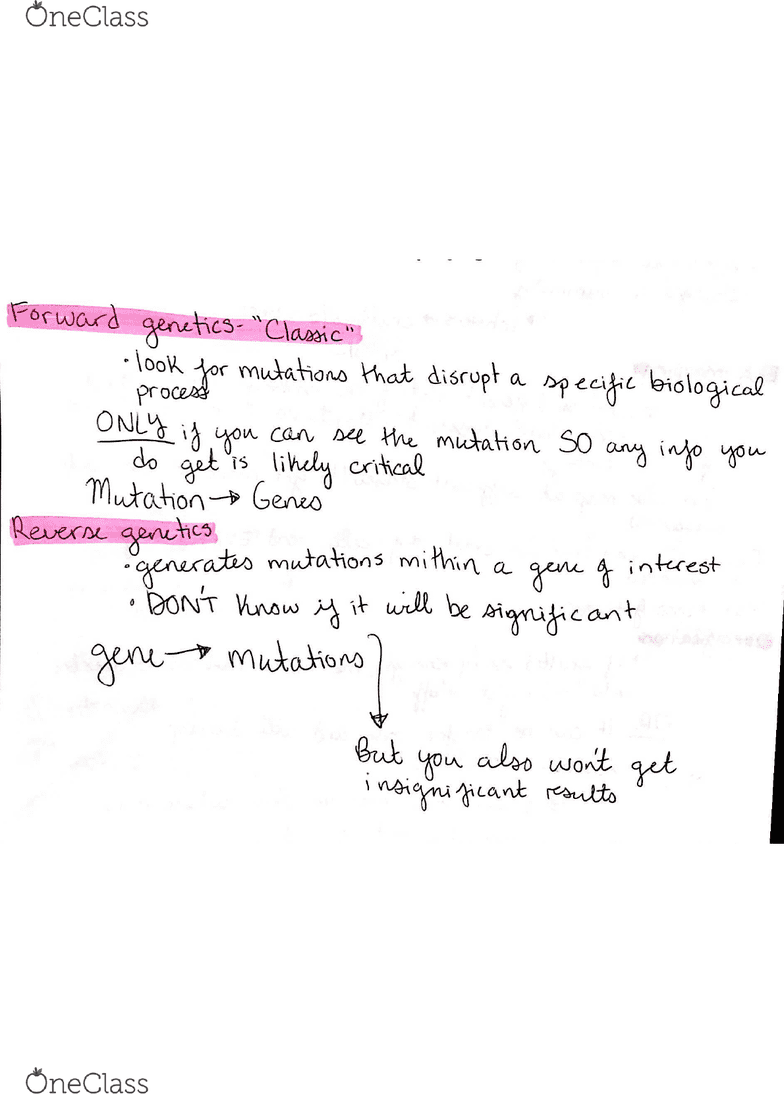 OneClass
Forward genetics - "Classic"
• look for mutations that disrupt a specific biological
process
ONLY if you can see the mutation SO any info you
do get is likely critical
Mutation → Genes
Reverse genetics
• generates mutations mithin a gene of interest
• DON'T know if it will be significant
gene → mutations
But you also won't get
insignificant results
OneClass